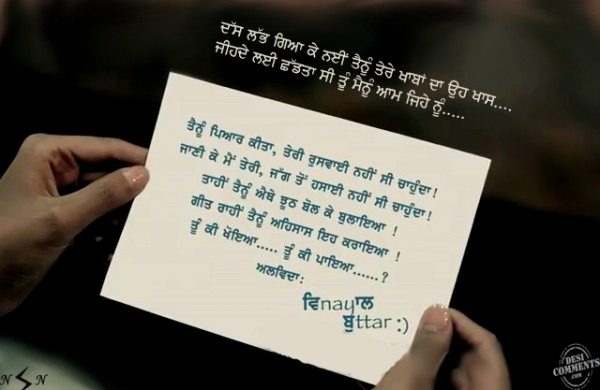 ਦੱਸ ਲੱਭ ਗਿਆ ਕੇ ਨਈਂ ਤੈਨੂੰ ਤੇਰੇ ਖਾਬਾਂ ਦਾ ਉਹ ਖਾਸ....
ਜੀਹਦੇ ਲਈ ਛੱਡਤਾ ਸੀ ਤੂੰ ਮੈਨੂੰ ਆਮ ਜਿਹੇ ਨੂੰ.....
ਤੈਨੂੰ ਪਿਆਰ ਕੀਤਾ, ਤੇਰੀ ਰੁਸਵਾਈ ਨਹੀਂ ਸੀ ਚਾਹੁੰਦਾ!
ਜਾਣੀ ਕੇ ਮੇਂ ਤੇਰੀ, ਜੱਗ ਤੋਂ ਹਸਾਈ ਨਹੀਂ ਸੀ ਚਾਹੁੰਦਾ!
ਤਾਹੀਂ ਤੈਨੂੰ ਐਥੇ ਝੂਠ ਬੋਲ ਕੇ ਬੁਲਾਇਆ !
ਗੀਤ ਰਾਹੀਂ ਤੈਨੂੰ ਅਹਿਸਾਸ ਇਹ ਕਰਾਇਆ !
ਤੂੰ ਕੀ ਖੋਇਆ..... ਤੂੰ ਕੀ ਪਾਇਆ......?
ਅਲਵਿਦਾ:
ਵਿnayਾਲ
ਬੁttar :)
N S N
DESI
COMMENTS
.com